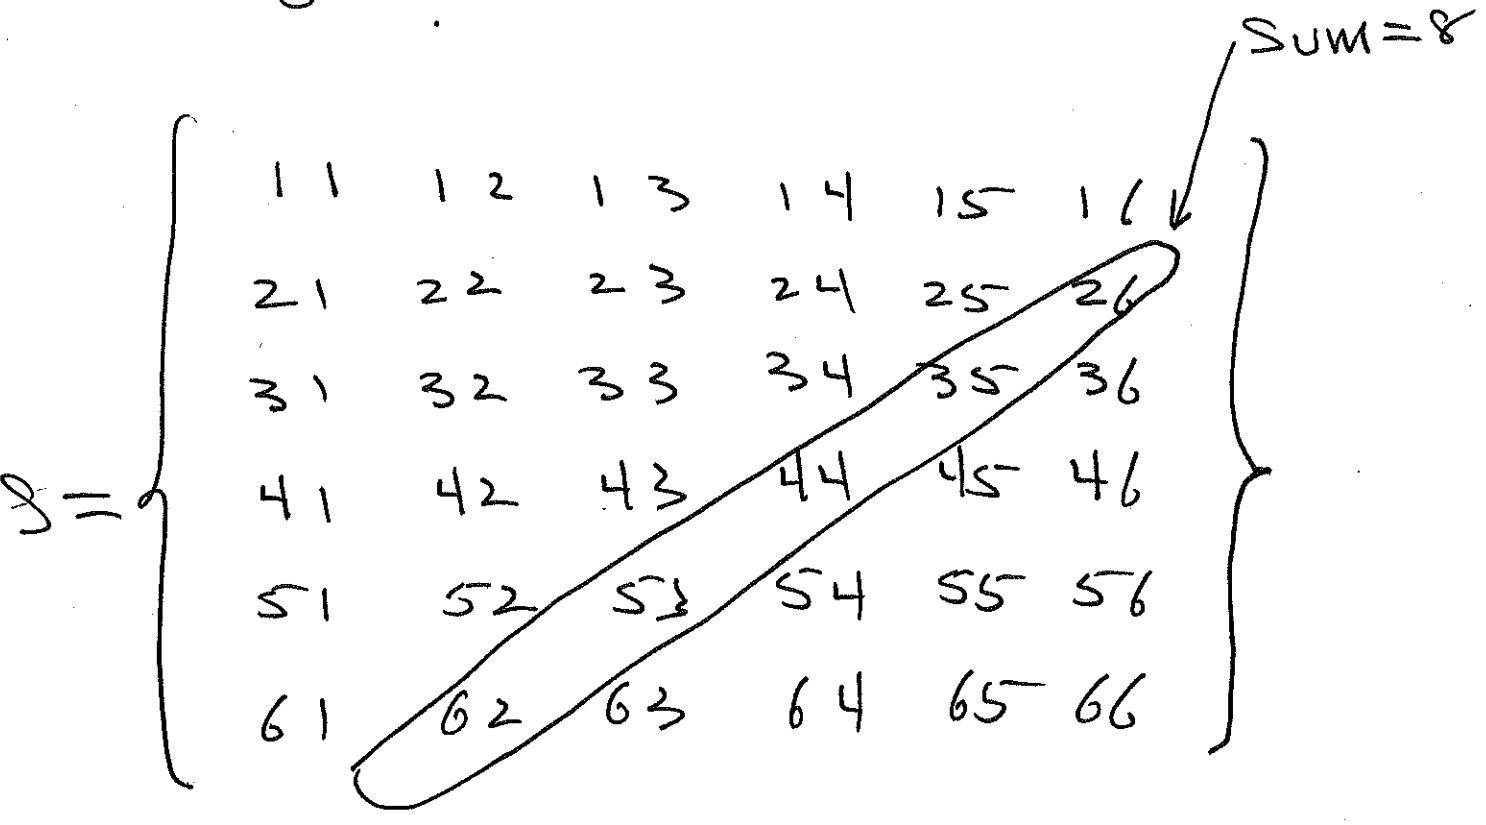 Sum=8
11 12 13 14 15 16
21 22 23 24 25 26
31 32 33 34 35 36
S= 41 42 43 44 45 46
51 52 53 54 55 56
61 62 63 64 65 66